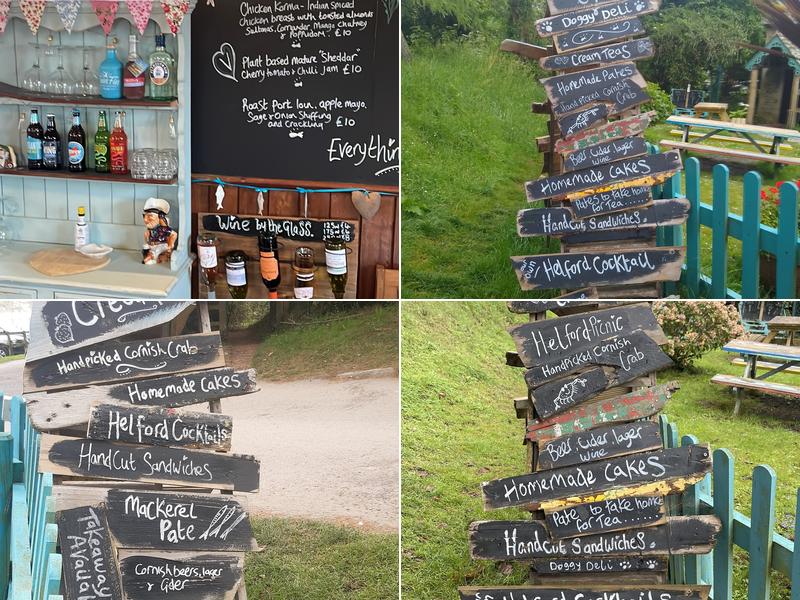 Chicken Korma - Indian Spiced
Chicken breast with toasted almonds
Sultanas, Corriander Mango Chutney
& Poppudom. £10
Plant based mature "Sheddar"
Cherry tomato & Chilli Jam £10
Roast Pork loin, apple mayo,
Sage & Onion Stuffing
and Crackling £10
Everythin
Wine by the Glass
Doggy Deli
Cream Teas
Homemade Pates
Handpicked Cornish
Crab
Beer Cider lager
wine
Homemade Cakes
Pates to take home
for Tea.....
Hand Cut Sandwiches.
Helford Cocktail
Cream
Handpicked Cornish Crab
Homemade Cakes
Helford Cocktails
Hand Cut Sandwiches
Mackerel
Pate
Takeaway
Availa
Cornish beers, lager
& Cider
Helford Picnic
Handpicked Cornish
Crab
Beer Cider lager
wine
Homemade Cakes
Pate to take home
for Tea......
Hand Cut Sandwiches.
Doggy Deli
Helford Cocktails